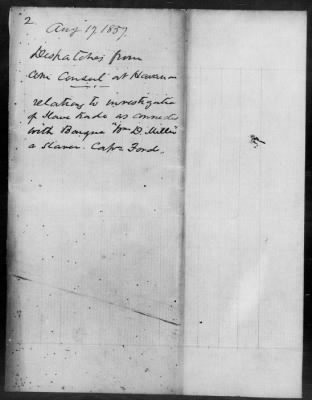 2
Aug 17, 1857.
Despatches from
Am Consul at Havana
relating to investigation
of Slave trade as connected
with Barque "Wm D. Miller"
a Slaver. Capn Ford.